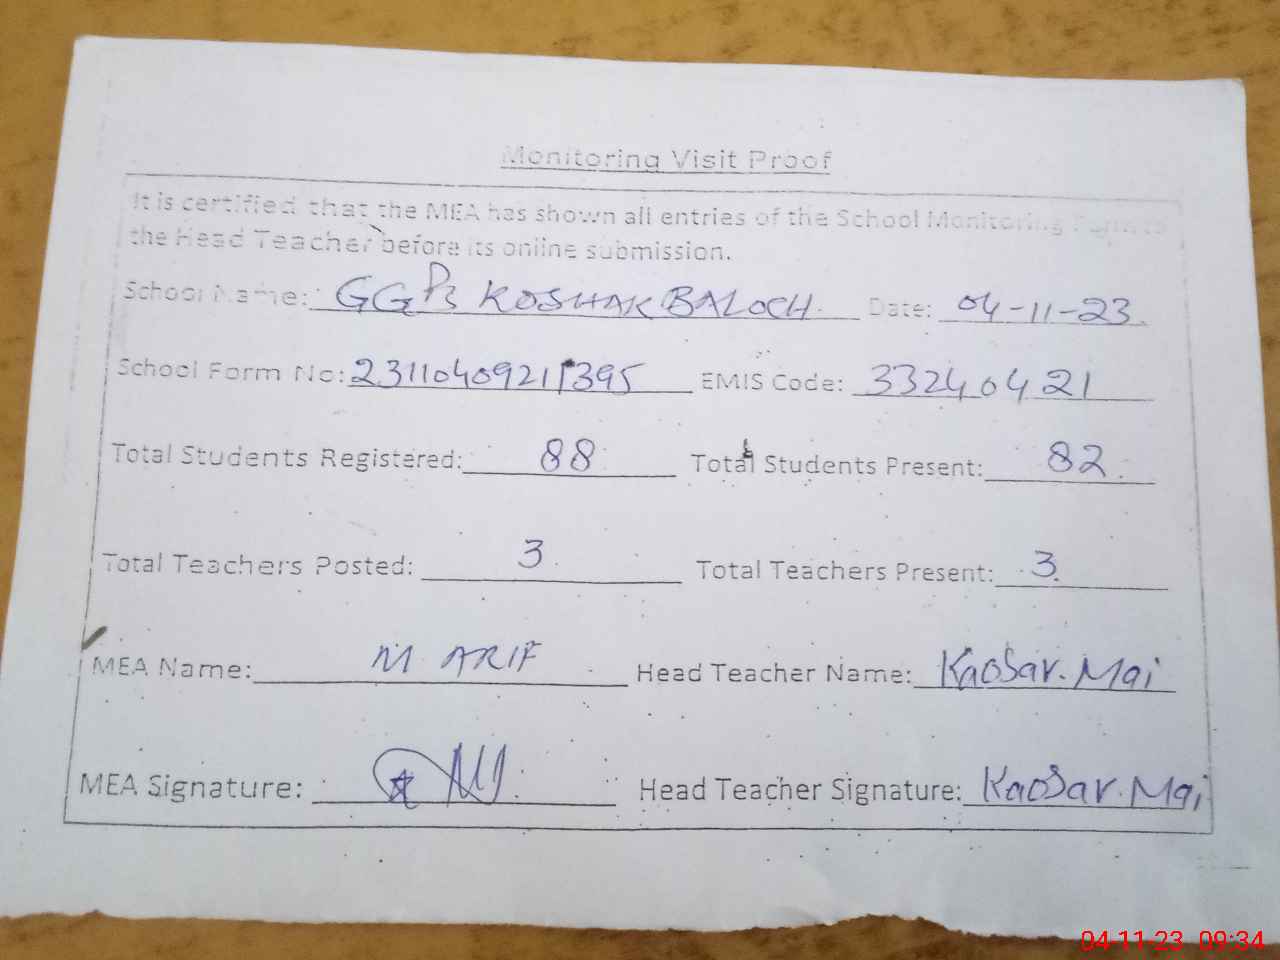 Monitoring Visit Proof
It is certified that the MEA has shown all entries of the School Monitoring
the Head Teacher before its online submission.
School Name: GGPS KOSHAK BALOCH. Date: 04-11-23.
School Form No: 231104092 1395 EMIS Code: 33240421
Total Students Registered: 88 Total Students Present: 82.
Total Teachers Posted: 3. Total Teachers Present: 3.
MEA Name: M ARIF Head Teacher Name: Kaosar. Mai
MEA Signature: Head Teacher Signature: Kaosar. Mai
04-11-23 09:34